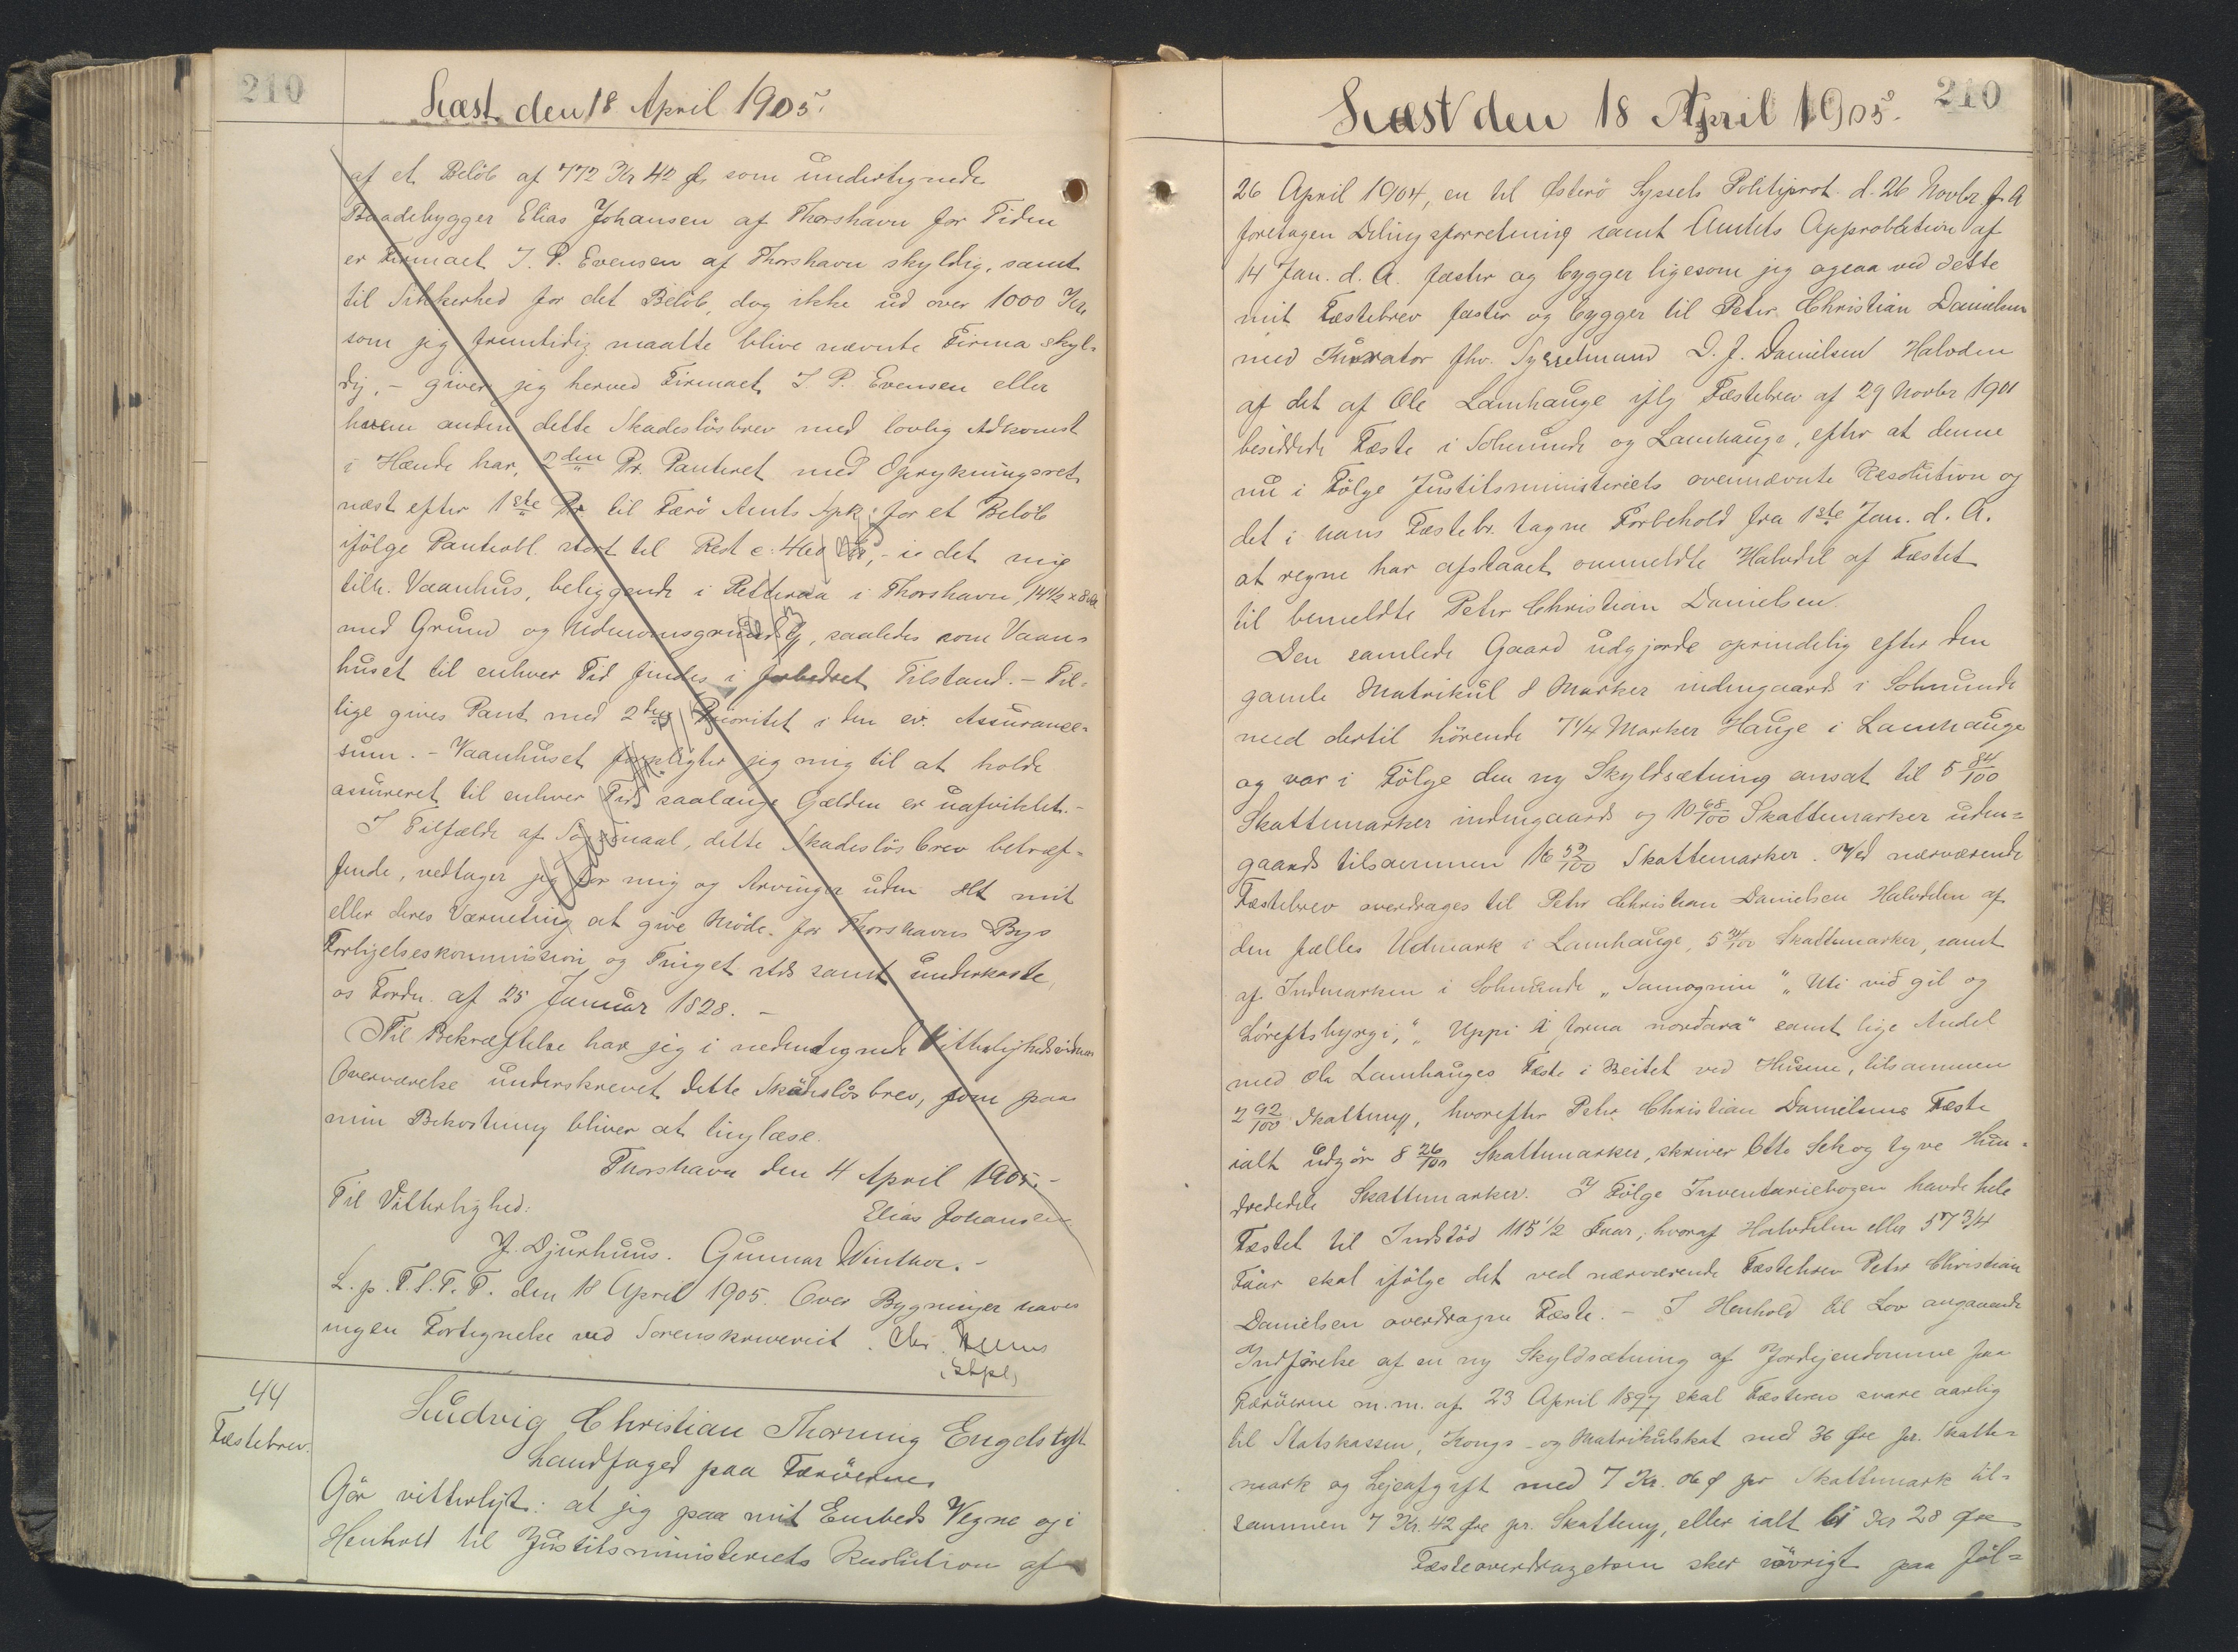 210
Læst den 18 April 1905.
af et Beløb af 772 Kr 42 Ø, som undertegnede
Baadebygger Elias Johansen af Thorshavn for Tiden
er Firmaet J. P. Evensen af Thorshavn skyldig, samt
til Sikkerhed for det Beløb, dog ikke ud over 1000 Kr,
som jeg fremtidig maatte blive nævnte Firma skyl-
dig, - giver jeg herved Firmaet J. P. Evensen eller
hvem anden dette Skadesløsbrev med lovlig Adkomst
i Hænde har, 2den Pr. Panteret med Oprykningsret
næst efter 1ste Pr. til Færø Amts Spk. for et Beløb
ifølge Pantobl. stort til Rest c. 460 Kr, - i det mig
tilh. Vaanhus, beliggende i Thorshavn, 14½ x 8
med Grund og Udenomsgrund, saaledes som Vaan-
huset til enhver Tid findes i forbedret Tilstand. - Til-
lige gives Pant med 2den Prioritet i den ev. Assurance-
sum. - Vaanhuset forpligter jeg mig til at holde
assureret til enhver Tid saalænge Gælden er uafviklet. -
I Tilfælde af Søgsmaal, dette Skadesløsbrev betræf-
fende, vedtager jeg for mig og Arvinger uden Hensyn mit
eller deres Værneting at give Møde for Thorshavns Bys
Forligelseskommission og Tinget sds samt underkaste
os Fordn. af 25 Januar 1828. -
Til Bekræftelse har jeg i nedentegnede Vitterlighedsvidners
Overværelse underskrevet dette Skadesløsbrev, som paa
min Bekostning bliver at tinglæse.
Thorshavn den 4 April 1905. -
Til Vitterlighed:
Elias Johansen
J. Djurhuus. Gunnar Winther. -
L. p. T. S. T. T. den 18 April 1905. Over Bygninger haves
ingen Fortegnelse ved Sorenskriveriet.
44
Fæstebrev.
Ludvig Christian Thorning Engelstoft
Landfoged paa Færøerne
Gør vitterligt: at jeg paa mit Embeds Vegne og i
Henhold til Justitsministeriets Resolution af
210
Læst den 18 April 1905.
26 April 1904, en til Østerø Syssels Politiprot. d. 26 Novbr. f. A
foretagen Delingsforretning samt Amtets Approbation af
14 Jan. d. A. fæster og bygger ligesom jeg ogsaa ved dette
mit Fæstebrev fæster og bygger til Peter Christian Danielsen
med Kurator fhv. Sysselmand D. J. Danielsen Halvden
af det af Ole Lamhauge iflg Fæstebrev af 29 Novbr 1901
besiddede Fæste i Solmunde og Lamhauge, efter at denne
nu i Følge Justitsministeriets ovennævnte Resolution og
det i hans Fæstebr. tagne Forbehold fra 1ste Jan. d. A.
at regne har afstaaet ommeldte Halvdel af Fæstet
til bemeldte Peter Christian Danielsen.
Den samlede Gaard udgjorde oprindelig efter den
gamle Matrikul 8 Marker indengaards i Solmunde
med dertil hørende 7¼ Marker Hauge i Lamhauge
og var i Følge den ny Skyldsætning ansat til 5 84/100
Skattemarker indengaards og 10 68/100 Skattemarker uden-
gaards tilsammen 16 52/100 Skattemarker. Ved nærværende
Fæstebrev overdrages til Peter Christian Danielsen Halvdelen af
den fælles Udmark i Lamhauge, 5 34/100 Skattemarker, samt
af Indmarken i Solmunde " " Uti við gil og
Løreftsbyrgi, " Uppi á forna norðara" samt lige Andel
med Ole Lamhauges Fæste i Beitet ved Husene, tilsammen
2 92/100 Skattemk, hvorefter Peter Christian Danielsens Fæste
ialt udgør 8 26/100 Skattemarker, skriver Otte Seksogtyve Hun-
drededele Skattemarker. I Følge Inventariebogen havde hele
Fæstet til Indstød 115½ Faar, hvoraf Halvdelen eller 57¾
Faar skal ifølge det ved nærværende Fæstebrev Peter Christian
Danielsen overdragne Fæste. - I Henhold til Lov angaaende
Indførelse af en ny Skyldsætning af Jordejendomme paa
Færøerne m. m. af 23 April 1897 skal Fæsteren svare aarlig
til Statskassen, Kongs- og Matrikulskat med 36 Øre pr. Skatte-
mark og Lejeafgift med 7 Kr. 06 Ø pr Skattemark til-
sammen 7 Kr. 42 Øre pr. Skattemk, eller ialt 61 Kr 28 Øre
Fæsteoverdragelsen sker iøvrigt paa føl-